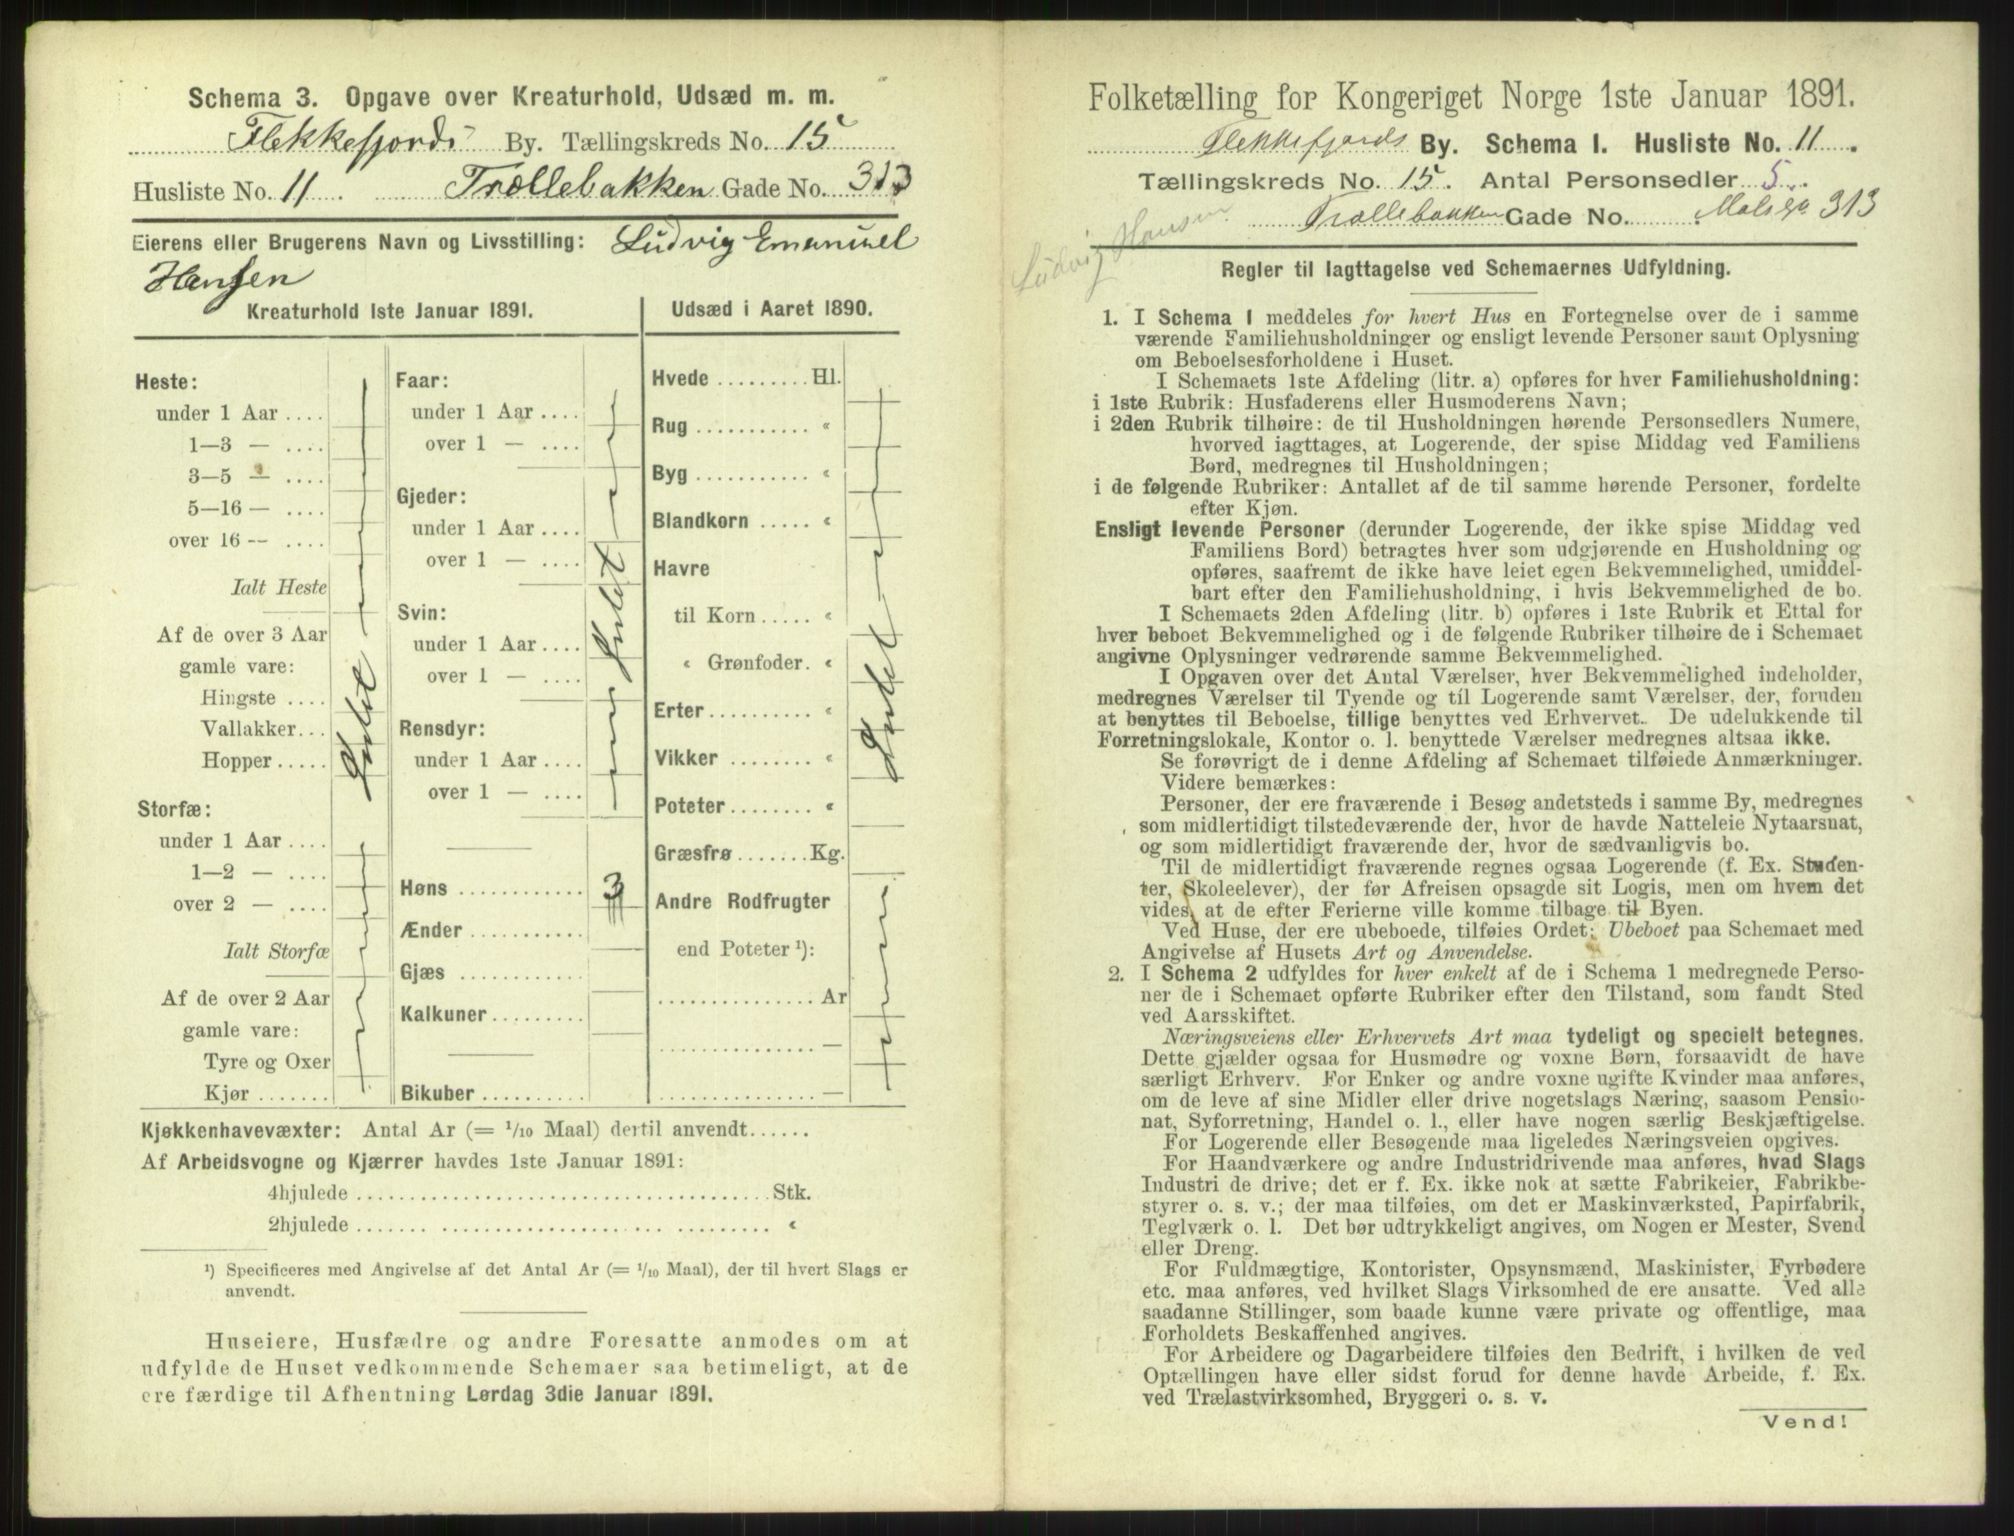 Schema 3. Opgave over Kreaturhold, Udsæd m. m.
Flekkefjords By. Tællingskreds No. 15
Husliste No. 11. Trællebakken Gade No. 313
Eierens eller Brugerens Navn og Livsstilling: Ludvig Emanuel
Hansen
Kreaturhold 1ste Januar 1891.
Heste:
under 1 Aar ....
1—3 — ....
3—5 — ....
5—16 — ....
over 16 — ....
Ialt Heste
Af de over 3 Aar
gamle vare:
Hingste ....
Vallakker...
Hopper .....
Intet
Storfæ:
under 1 Aar ....
1—2 — ....
over 2 — ....
Ialt Storfæ
Af de over 2 Aar
gamle vare:
Tyre og Oxer
Kjør .......
Faar:
under 1 Aar ....
over 1 — ....
Gjeder:
under 1 Aar ....
over 1 — ....
Svin:
under 1 Aar ....
over 1 — ....
Intet
Rensdyr:
under 1 Aar ....
over 1 — ....
Høns ............ 3
Ænder ...........
Gjæs ............
Kalkuner.........
Bikuber ..........
Udsæd i Aaret 1890.
Hvede ......... Hl.
Rug ........... «
Byg ........... «
Blandkorn ..... «
Havre
til Korn..... «
« Grønfoder. «
Erter.......... «
Vikker ........ «
Intet
Poteter........ «
Græsfrø.......Kg.
Andre Rodfrugter
end Poteter ¹):
............... Ar
............... —
............... —
Kjøkkenhavevæxter: Antal Ar (= 1/10 Maal) dertil anvendt......
Af Arbeidsvogne og Kjærrer havdes 1ste Januar 1891:
4hjulede ...................................... Stk.
2hjulede ...................................... «
¹) Specificeres med Angivelse af det Antal Ar (= 1/10 Maal), der til hvert Slags er
anvendt.
Huseiere, Husfædre og andre Foresatte anmodes om at
udfylde de Huset vedkommende Schemaer saa betimeligt, at de
ere færdige til Afhentning Lørdag 3die Januar 1891.
Folketælling for Kongeriget Norge 1ste Januar 1891.
Flekkefjords By. Schema I. Husliste No. 11.
Tællingskreds No. 15. Antal Personsedler 5.
Trællebakken Gade No. 313
Ludvig Hansen
Regler til Iagttagelse ved Schemaernes Udfyldning.
1. I Schema I meddeles for hvert Hus en Fortegnelse over de i samme
værende Familiehusholdninger og ensligt levende Personer samt Oplysning
om Beboelsesforholdene i Huset.
I Schemaets 1ste Afdeling (litr. a) opføres for hver Familiehusholdning:
i 1ste Rubrik: Husfaderens eller Husmoderens Navn;
i 2den Rubrik tilhøire: de til Husholdningen hørende Personsedlers Numere,
hvorved iagttages, at Logerende, der spise Middag ved Familiens
Bord, medregnes til Husholdningen;
i de følgende Rubriker: Antallet af de til samme hørende Personer, fordelte
efter Kjøn.
Ensligt levende Personer (derunder Logerende, der ikke spise Middag ved
Familiens Bord) betragtes hver som udgjørende en Husholdning og
opføres, saafremt de ikke have leiet egen Bekvemmelighed, umiddel-
bart efter den Familiehusholdning, i hvis Bekvemmelighed de bo.
I Schemaets 2den Afdeling (litr. b) opføres i 1ste Rubrik et Ettal for
hver beboet Bekvemmelighed og i de følgende Rubriker tilhøire de i Schemaet
angivne Oplysninger vedrørende samme Bekvemmelighed.
I Opgaven over det Antal Værelser, hver Bekvemmelighed indeholder,
medregnes Værelser til Tyende og til Logerende samt Værelser, der, foruden
at benyttes til Beboelse, tillige benyttes ved Erhvervet. De udelukkende til
Forretningslokale, Kontor o. l. benyttede Værelser medregnes altsaa ikke.
Se forøvrigt de i denne Afdeling af Schemaet tilføiede Anmærkninger.
Videre bemærkes:
Personer, der ere fraværende i Besøg andetsteds i samme By, medregnes
som midlertidigt tilstedeværende der, hvor de havde Natteleie Nytaarsnat,
og som midlertidigt fraværende der, hvor de sædvanligvis bo.
Til de midlertidigt fraværende regnes ogsaa Logerende (f. Ex. Studen-
ter, Skoleelever), der før Afreisen opsagde sit Logis, men om hvem det
vides, at de efter Ferierne ville komme tilbage til Byen.
Ved Huse, der ere ubeboede, tilføies Ordet: Ubeboet paa Schemaet med
Angivelse af Husets Art og Anvendelse.
2. I Schema 2 udfyldes for hver enkelt af de i Schema 1 medregnede Perso-
ner de i Schemaet opførte Rubriker efter den Tilstand, som fandt Sted
ved Aarsskiftet.
Næringsveiens eller Erhvervets Art maa tydeligt og specielt betegnes.
Dette gjælder ogsaa for Husmødre og voxne Børn, forsaavidt de have
særligt Erhverv. For Enker og andre voxne ugifte Kvinder maa anføres,
om de leve af sine Midler eller drive nogetslags Næring, saasom Pensio-
nat, Syforretning, Handel o. l., eller have nogen særlig Beskjæftigelse.
For Logerende eller Besøgende maa ligeledes Næringsveien opgives.
For Haandværkere og andre Industridrivende maa anføres, hvad Slags
Industri de drive; det er f. Ex. ikke nok at sætte Fabrikeier, Fabrikbe-
styrer o. s. v.; der maa tilføies, om det er Maskinværksted, Papirfabrik,
Teglværk o. l. Det bør udtrykkeligt angives, om Nogen er Mester, Svend
eller Dreng.
For Fuldmægtige, Kontorister, Opsynsmænd, Maskinister, Fyrbødere
etc. maa anføres, ved hvilket Slags Virksomhed de ere ansatte. Ved alle
saadanne Stillinger, som baade kunne være private og offentlige, maa
Forholdets Beskaffenhed angives.
For Arbeidere og Dagarbeidere tilføies den Bedrift, i hvilken de ved
Optællingen have eller sidst forud for denne havde Arbeide, f. Ex.
ved Trælastvirksomhed, Bryggeri o. s. v.
Vend!